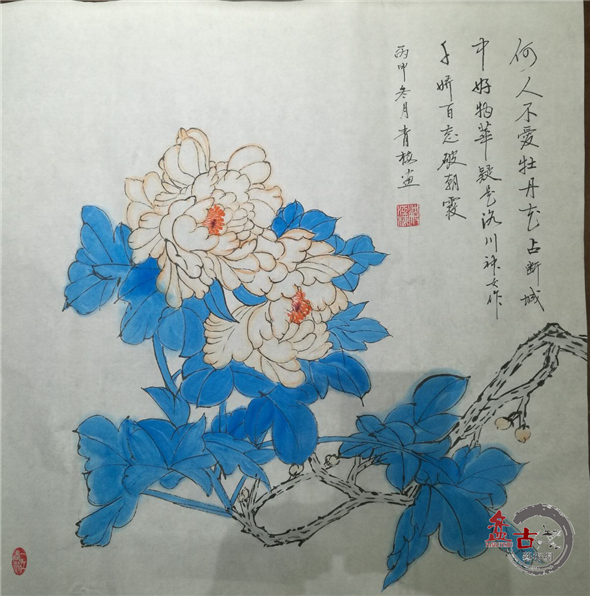 何人不愛牡丹花占断城
中好物華疑是洛川神女作
千娇百态破朝霞
丙申冬月青画
盘古